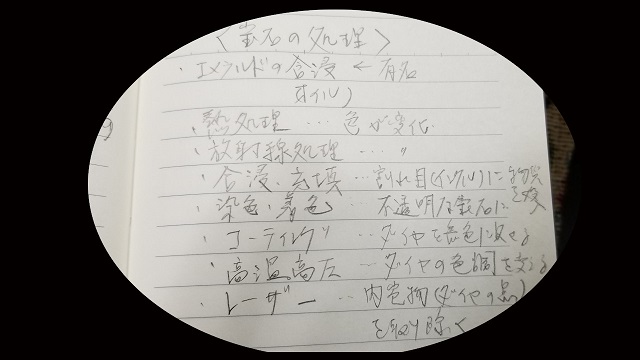 〈宝石の処理〉
・エメラルドの含浸 ← 有名
オイル)
・熱処理 … 色が変化
・放射線処理 … 〃
・含浸、充填 … 割れ目(インクル)に物質
を
・染色・着色 … 不透明な宝石に
・コーティング … ダイヤを
・高温高圧 … ダイヤの色調を変える
・レーザー … 内包物(ダイヤの黒)
を取り除く